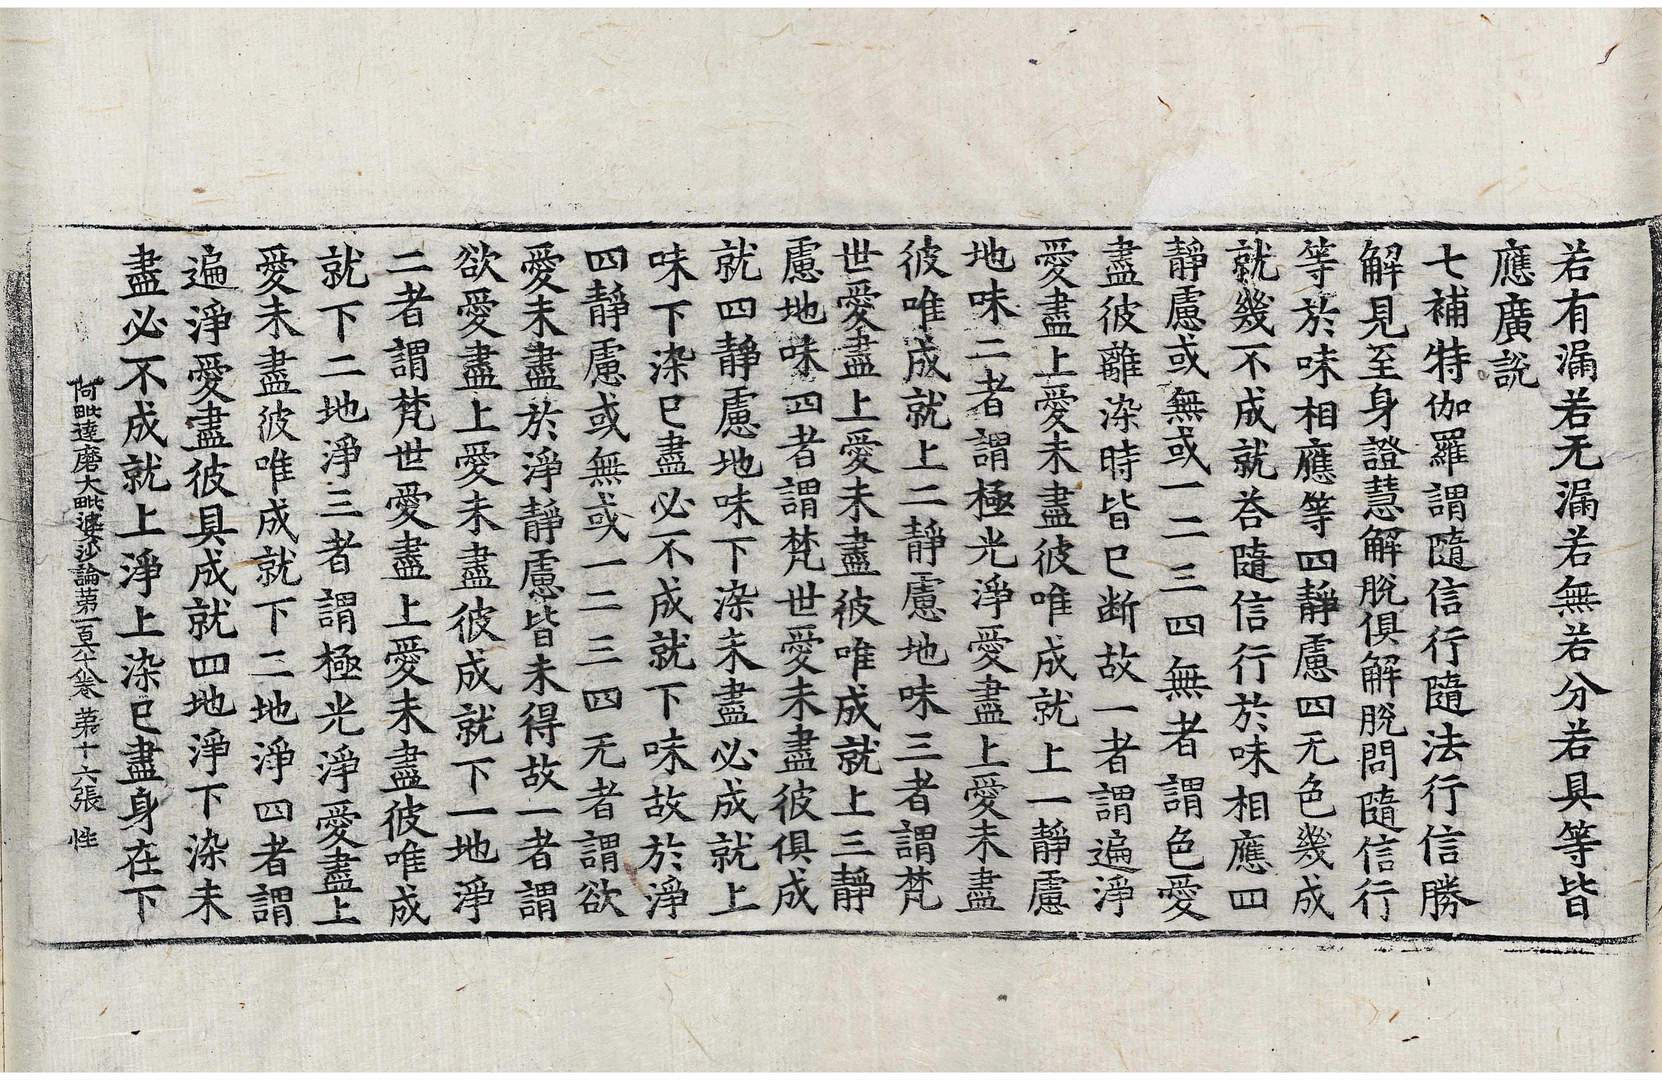 若有漏若无漏若無若分若具等皆
應廣說
七補特伽羅謂隨信行隨法行信勝
解見至身證慧解脫俱解脫問隨信行
等於味相應等四靜慮四无色幾成
就幾不成就荅隨信行於味相應四
靜慮或無或一二三四無者謂色愛
盡彼離染時皆已斷故一者謂遍淨
愛盡上愛未盡彼唯成就上一靜慮
地味二者謂極光淨愛盡上愛未盡
彼唯成就上二靜慮地味三者謂梵
世愛盡上愛未盡彼唯成就上三靜
慮地味四者謂梵世愛未盡彼俱成
就四靜慮地味下染未盡必成就上
味下染已盡必不成就下味故於淨
四靜慮或無或一二三四无者謂欲
愛未盡於淨靜慮皆未得故一者謂
欲愛盡上愛未盡彼成就下一地淨
二者謂梵世愛盡上愛未盡彼唯成
就下二地淨三者謂極光淨愛盡上
愛未盡彼唯成就下三地淨四者謂
遍淨愛盡彼具成就四地淨下染未
盡必不成就上淨上染已盡身在下
阿毗達磨大毗婆沙論第一百六十八卷 第十六張 性